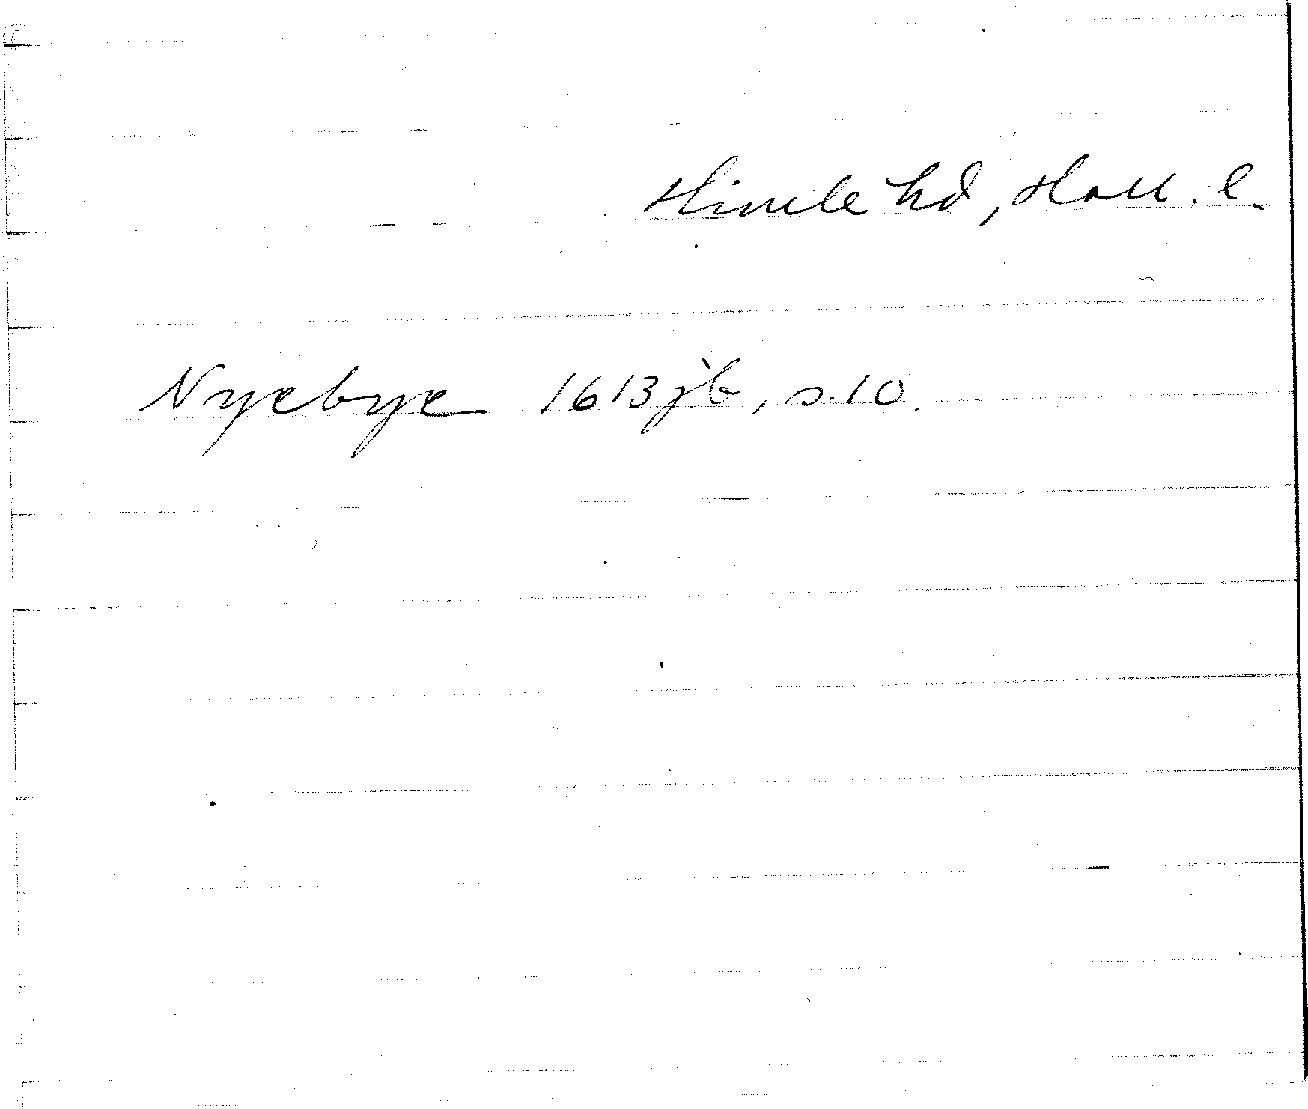 Himle hd, Hall. l.
Nyebye 1613 jb, s. 10.